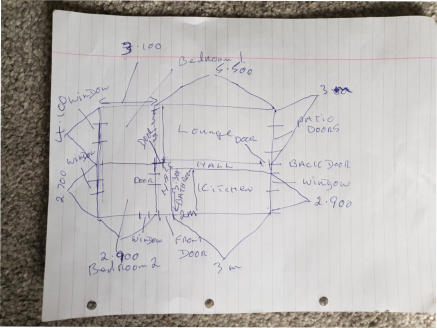 3.100
Bedroom 1
5.500
3 m
WINDOW
4.100
PATIO
DOORS
Lounge
DOOR
HALL
BACK DOOR
WINDOW
2.700
DOOR
KITCHEN
WINDOW
2.900
2m
WINDOW
FRONT
DOOR
2.900
Bedroom 2
3 m